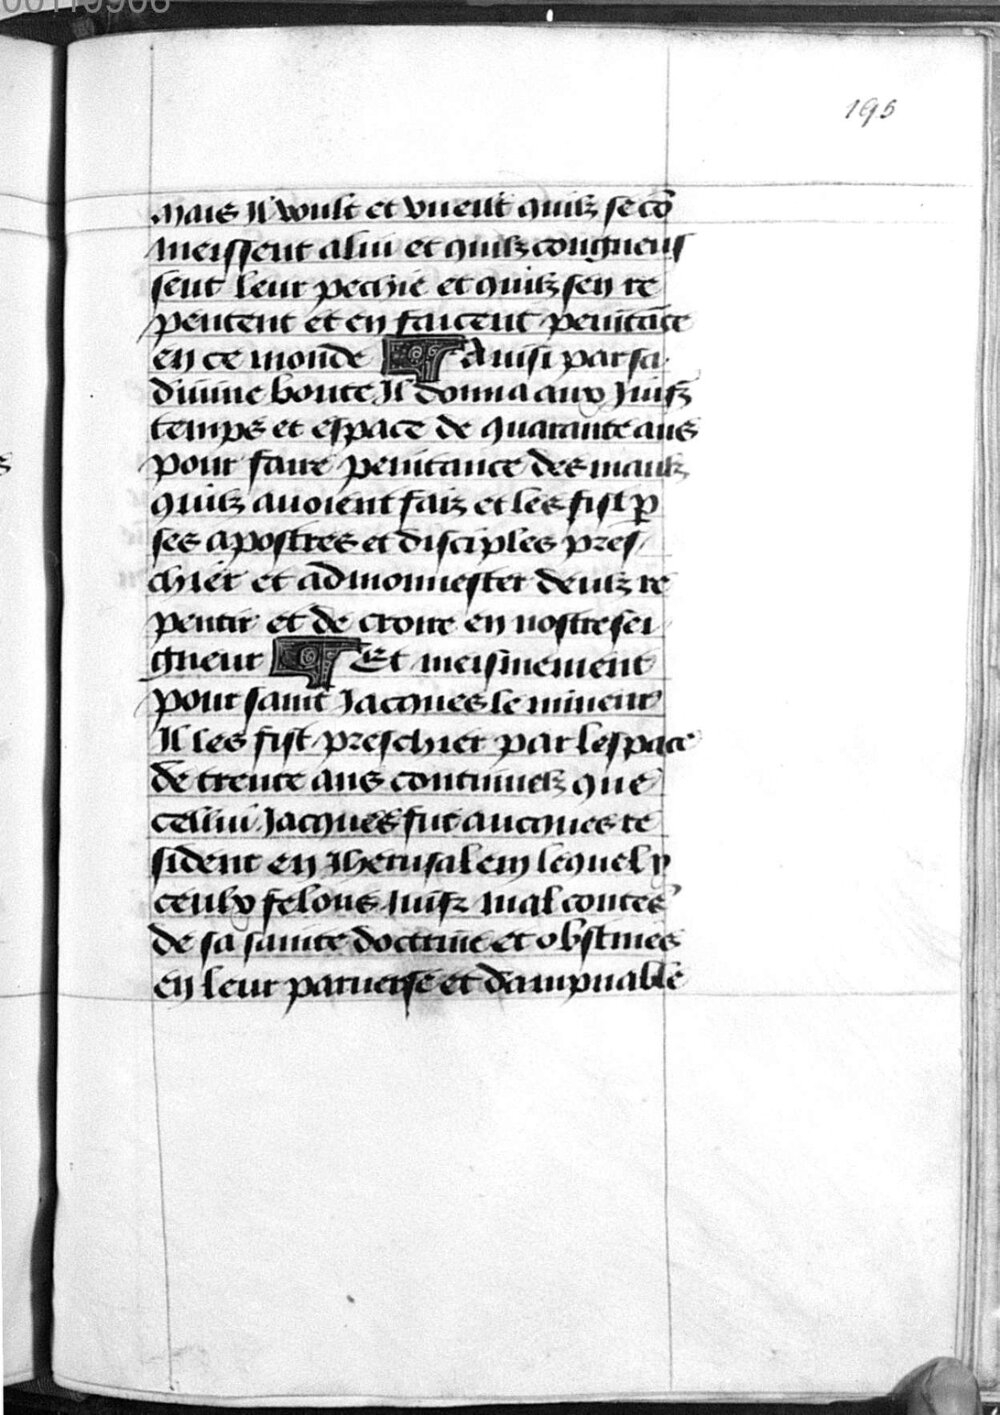 195
Mais Il voult et vueilt quilz se cō
meissent a lui et quilz congneus
sent leur pechie et quilz sen re
pentent et en faicent penitāce
en ce monde ¶ Ainsi par sa
diuine bonte Il donna aux Juifz
temps et espace de quarante ans
pour faire penitance des maulz
quilz auoient faiz et les fist ꝑ
ses apostres et disciples pres
chier et admonnester deulz re
pentir et de croire en nostre sei
gneur ¶ Et meismement
pour saint Jacques le mineur
Il les fist preschier par lespace
de trente ans continuelz que
cellui Jacques fut aucques re
sident en Jherusalem lequel y
ceulx felons Juifz mal contēs
de sa sainte doctrine et obstines
en leur peruerse et dampnable